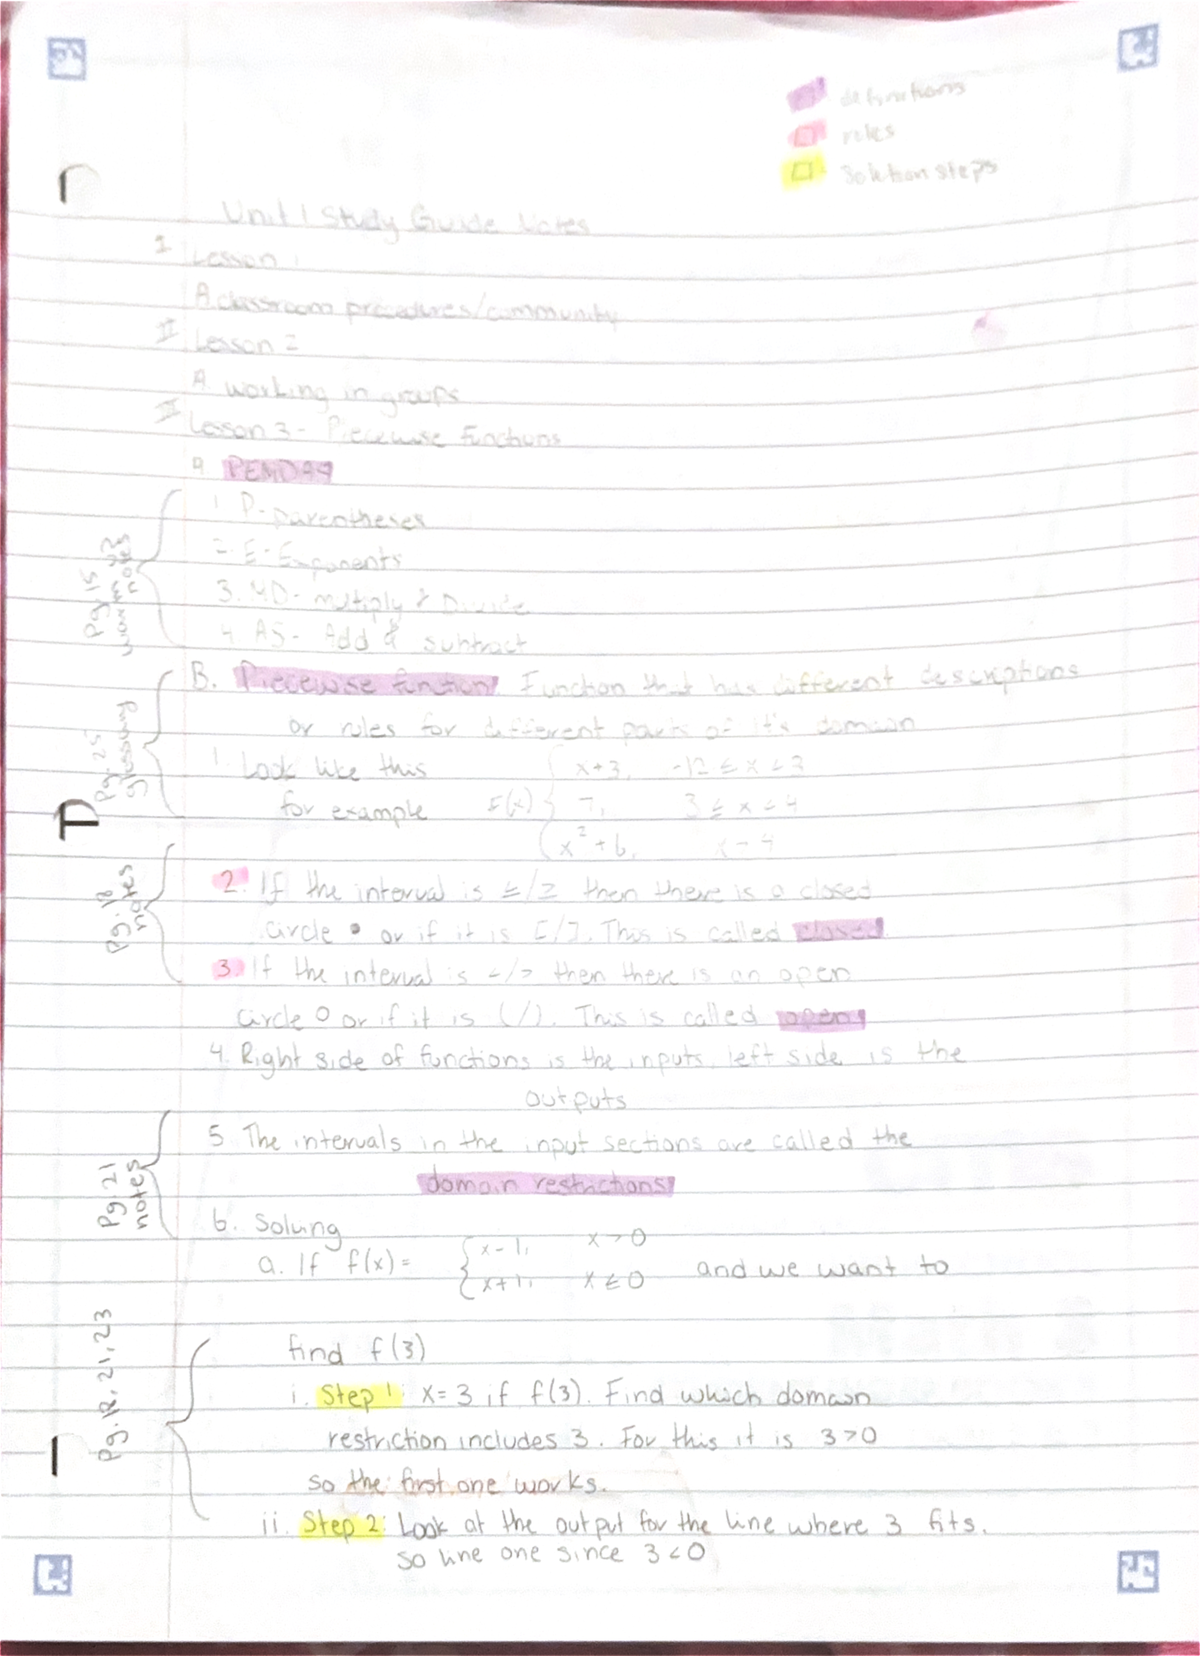 definitions
rules
Solution steps
Unit 1 Study Guide Notes
I Lesson 1
A. classroom procedures/community
II Lesson 2
A. working in groups
III Lesson 3 - Piecewise Functions
A PEMDAS
1. P- parentheses
2. E- Exponents
3. MD- multiply & Divide
4. AS- Add & subtract
Pg. 15
warm up
notes
B. Piecewise function: Function that has different descriptions
or rules for different parts of it's domain
1. Look like this
for example
f(x) { x+3, -12 ≤ x < 3
7, 3 ≤ x < 4
x² + 6,
Pg. 25
glossary
2. If the interval is ≤/≥ then there is a closed
circle • or if it is [/]. This is called closed
3. If the interval is </> then there is an open
circle O or if it is (/). This is called open
Pg. 18
notes
4. Right side of functions is the inputs, left side is the
outputs
5. The intervals in the input sections are called the
domain restrictions
Pg. 21
notes
6. Solving
a. If f(x) = { x-1, x > 0
x+1, x ≤ 0 and we want to
find f(3)
i. Step 1: x=3 if f(3). Find which domain
restriction includes 3. For this it is 3>0
so the first one works.
ii. Step 2: Look at the output for the line where 3 fits.
so line one since 3<0
Pg. 18, 21, 23